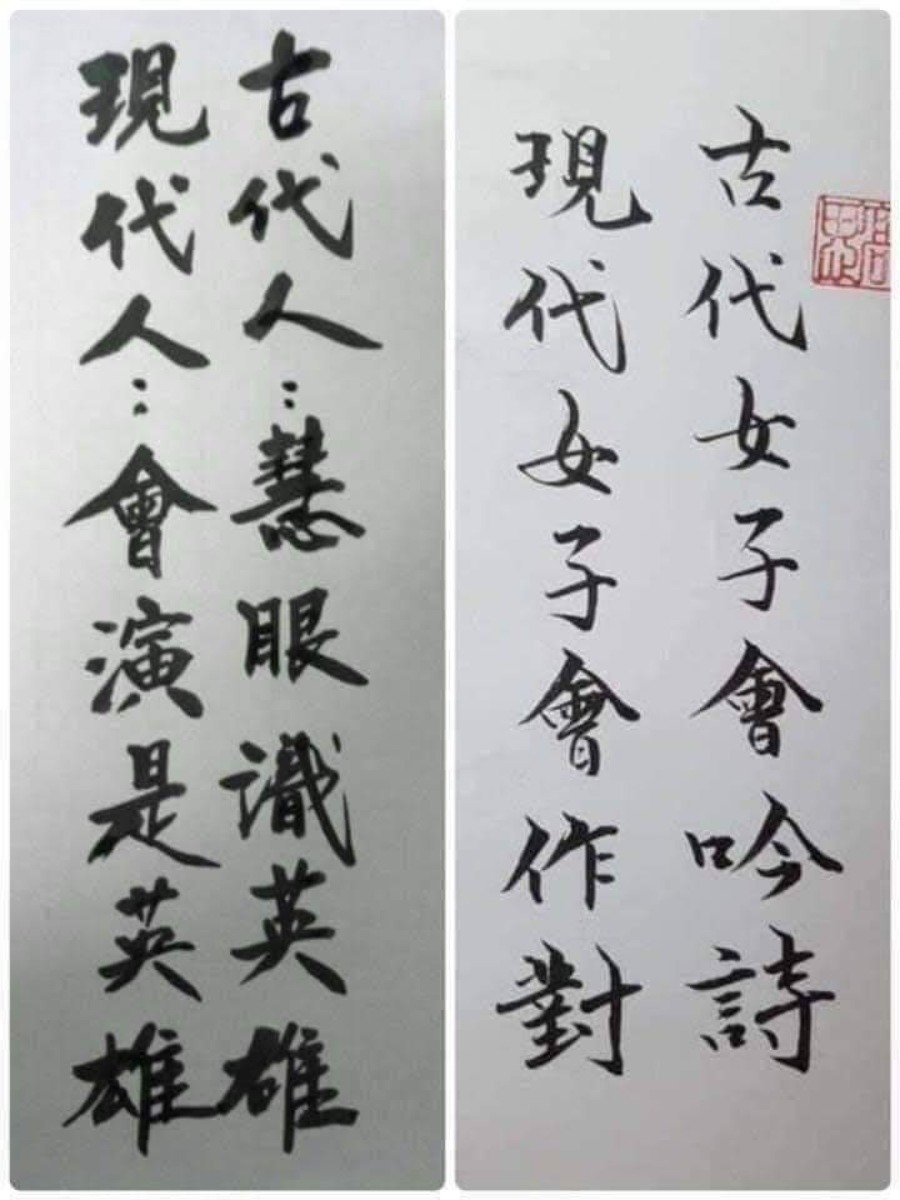 古代人：慧眼識英雄
現代人：會演是英雄
古代女子會吟詩
現代女子會作對